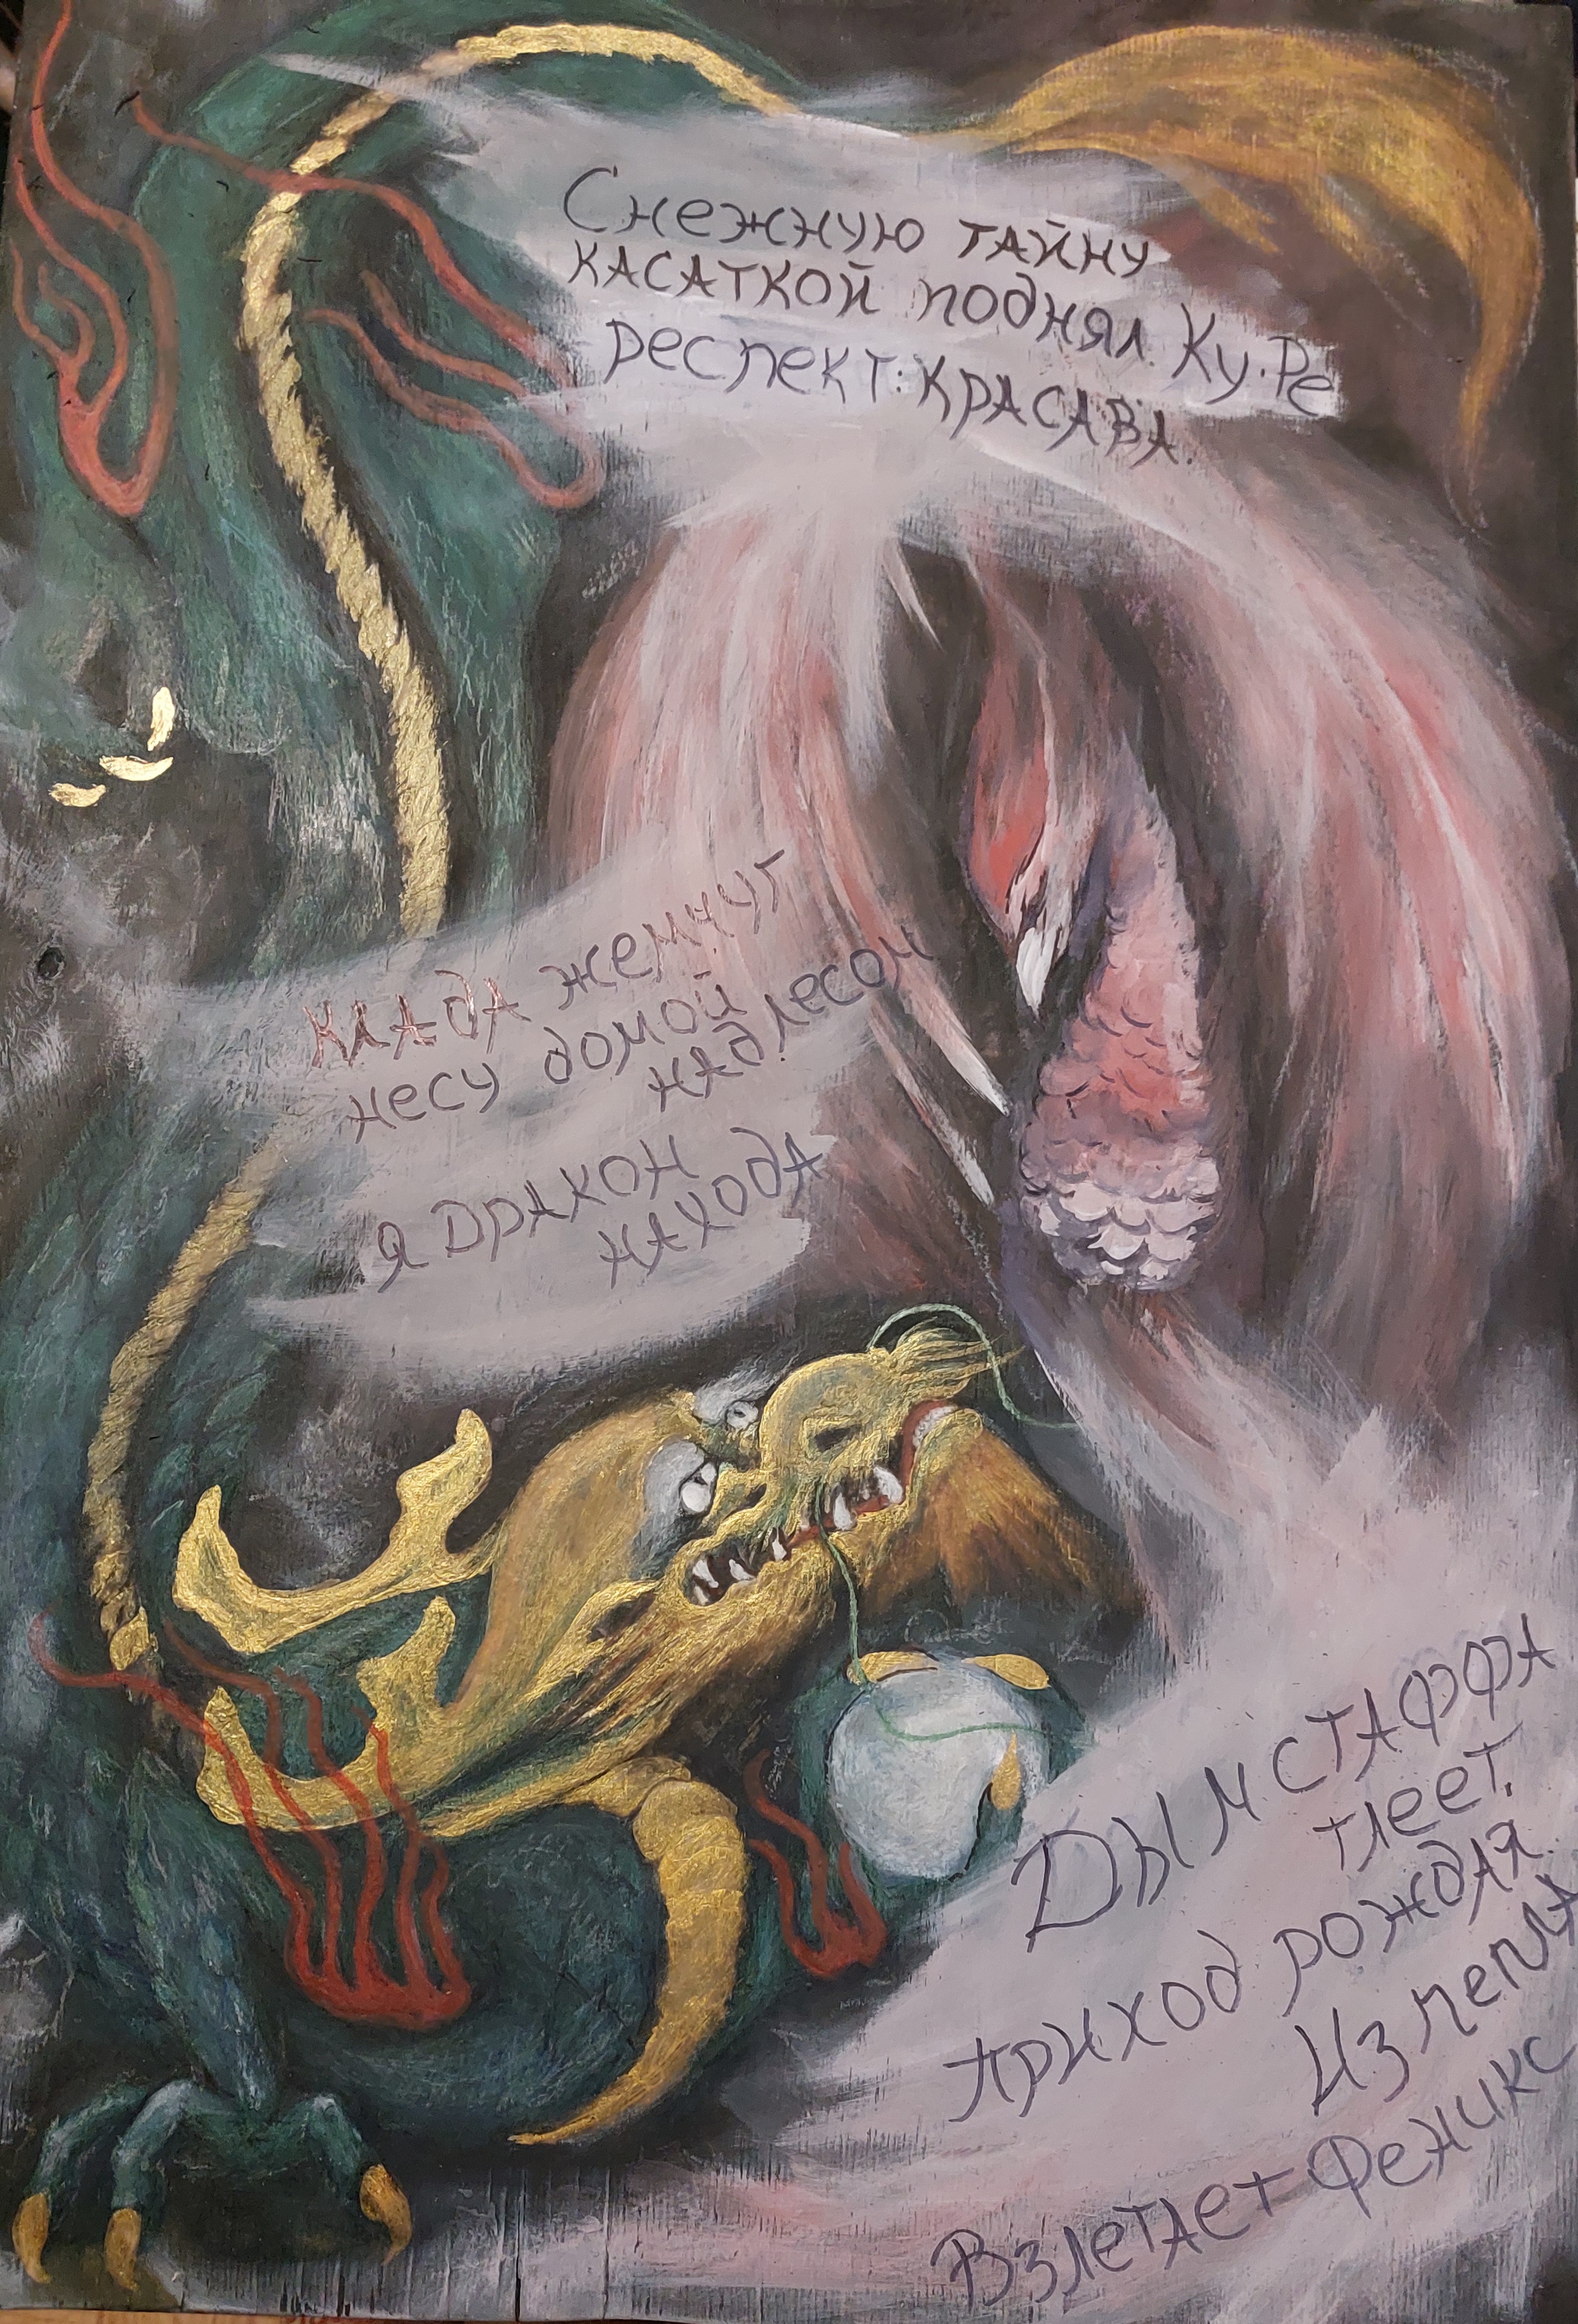 Снежную тайну
касаткой поднял Ку.Ре
респект: красава.
клада жемчуг
несу домой
над лесом
я дракон
находа
Дым стаффа
тлеет.
приход рождая
Из пепла
Взлетает Феникс